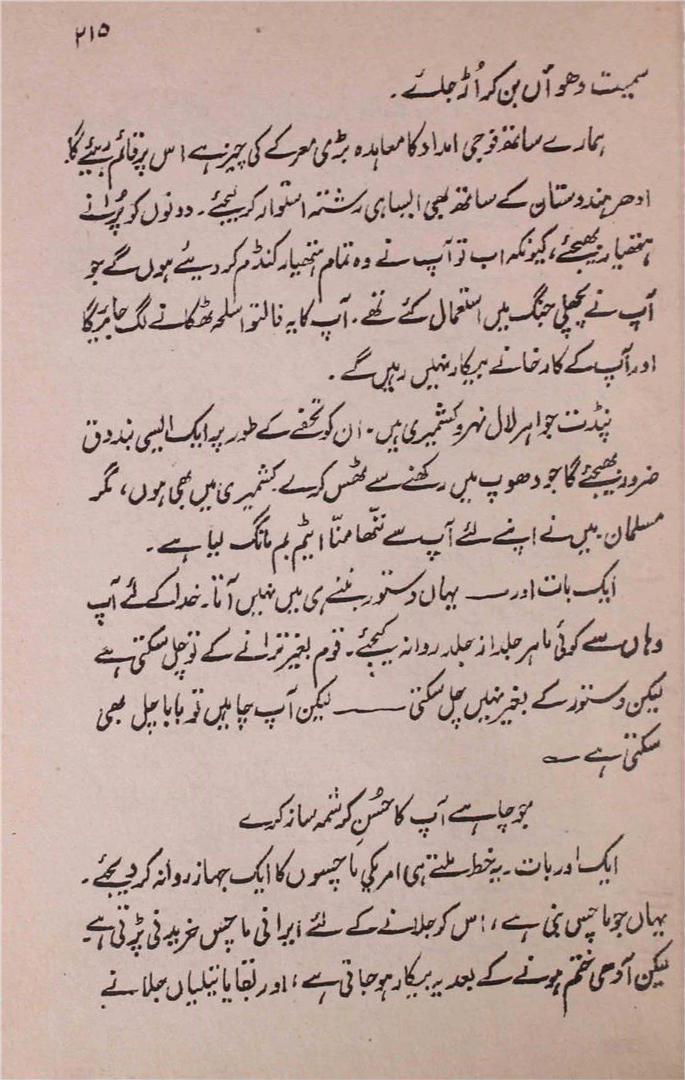 ۲۱۵
سمیت دھواں بن کر اُڑ جائے۔
ہمارے ساتھ فوجی امداد کا معاہدہ بڑی معرکے کی چیز ہے اس پر قائم رہیئے گا۔
ادھر ہندوستان کے ساتھ بھی ایسا ہی رشتہ استوار کر لیجئے۔ دونوں کو پُرانے
ہتھیار بھیجئے، کیونکہ اب تو آپ نے وہ تمام ہتھیار کنڈم کر دیئے ہوں گے جو
آپ نے پچھلی جنگ میں استعمال کئے تھے۔ آپ کا یہ فالتو اسلحہ ٹھکانے لگ جائیگا
اور آپ کے کارخانے بیکار نہیں رہیں گے۔
پنڈت جواہر لال نہرو کشمیری ہیں۔ ان کو تحفے کے طور پر ایک ایسی بندوق
ضرور بھیجئے گا جو دھوپ میں رکھنے سے ٹھس کرے کشمیری میں بھی ہوں، مگر
مسلمان۔ میں نے اپنے لئے آپ سے ننھا منّا ایٹم بم مانگ لیا ہے۔
ایک بات اور —— یہاں دستور بننے ہی میں نہیں آتا۔ خدا کے لئے آپ
وہاں سے کوئی ماہر جلد از جلد روانہ کیجئے۔ قوم بغیر ترانے کے تو چل سکتی ہے
لیکن دستور کے بغیر نہیں چل سکتی —— لیکن آپ چاہیں تو بابا چل بھی
سکتی ہے ؂
جو چاہے آپ کا حُسنِ کرشمہ ساز کرے
ایک اور بات۔ یہ خط ملتے ہی امریکی ماچسوں کا ایک جہاز روانہ کر دیجئے۔
یہاں جو ماچس بنی ہے، اس کو جلانے کے لئے ایرانی ماچس خریدنی پڑتی ہے۔
لیکن آدھی ختم ہونے کے بعد یہ بیکار ہو جاتی ہے، اور بقایا تیلیاں جلانے